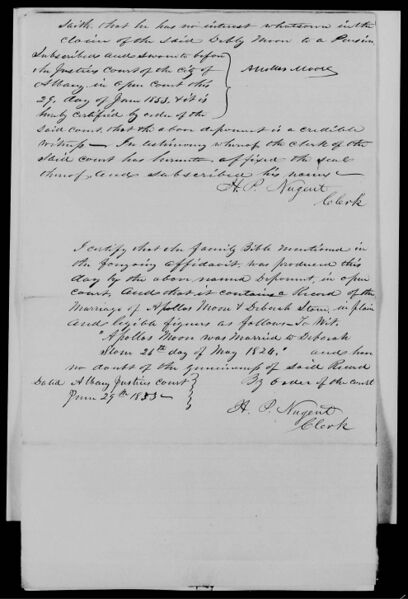 Saith that he has no interest whatsoever in the
claim of the said Debby Moon to a Pension
Subscribed and Sworn to before
the Justices Court of the City of
Albany in open Court this
29. day of June 1853. & it is
hereby certified by order of the
said court that the above deponent is a credible
witness — In testimony whereof the clerk of the
said court has hereunto affixed the seal
thereof, and subscribed his name —
H. P. Nugent
Clerk
I certify that the family Bible mentioned in
the foregoing affidavit, was produced this
day by the above named Deponent, in open
court, and that it contains a Record of the
Marriage of Apollos Moon & Deborah Stow, in plain
and legible figures as follows - To Wit,
"Apollos Moon was Married to Deborah
Stow 26th day of May 1824." and have
no doubt of the genuineness of said Record
Dated Albany Justices Court
June 29th 1853 —
By Order of the court
H. P. Nugent
Clerk